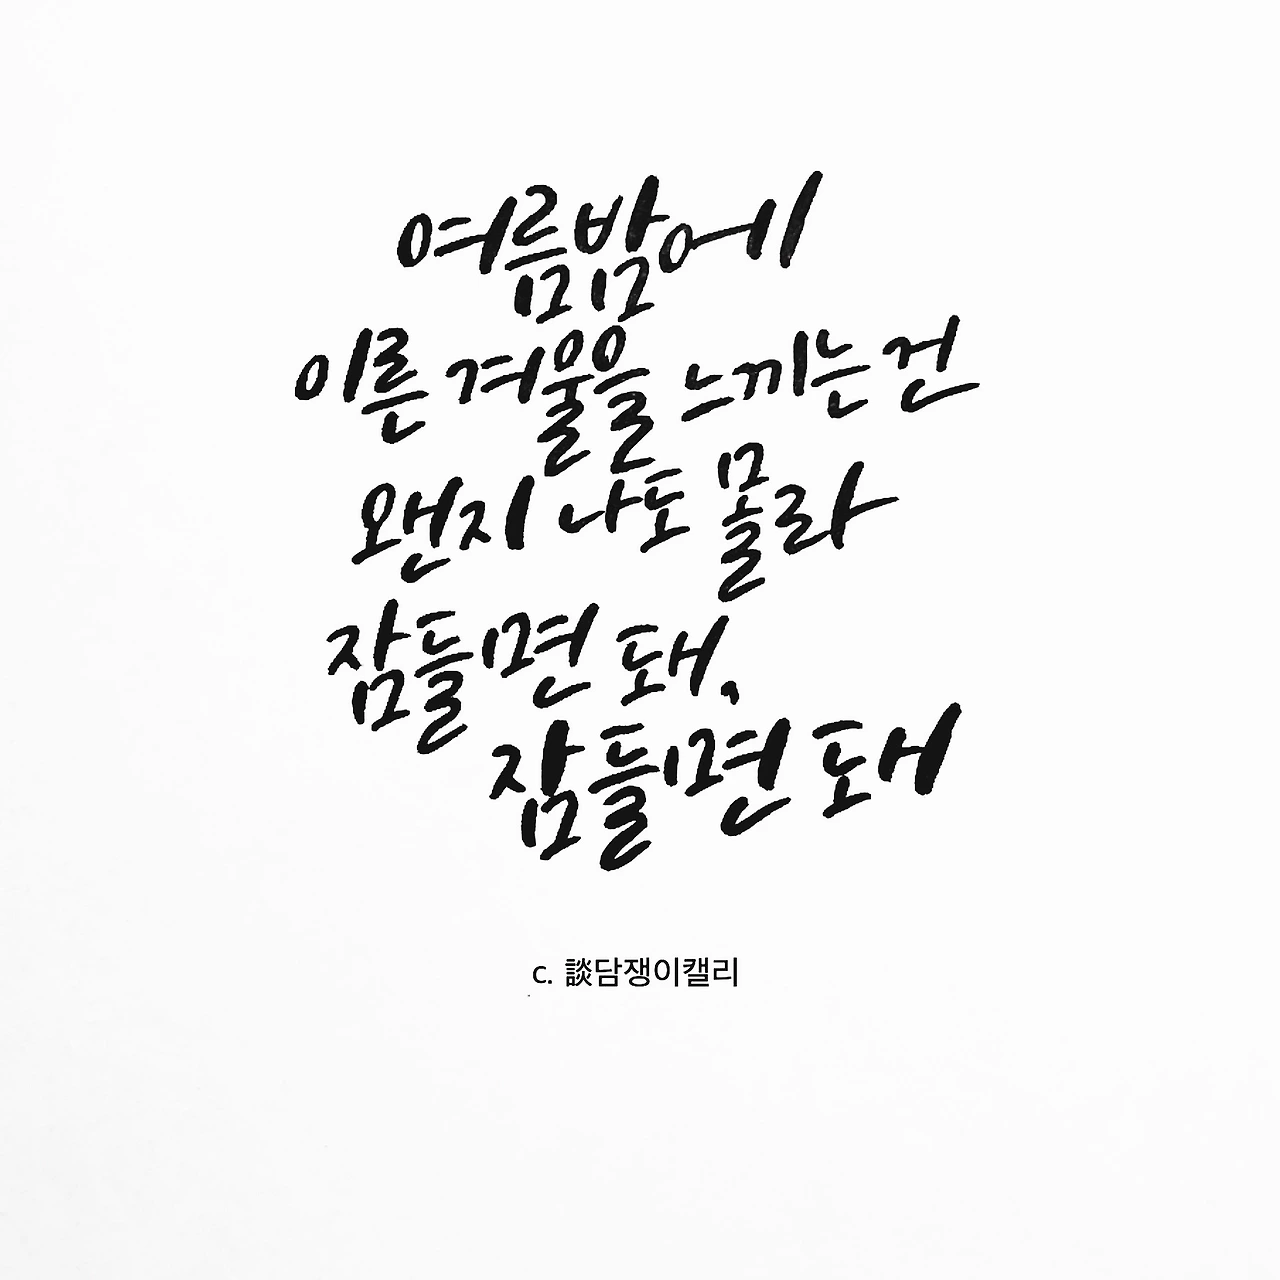 여름밤에
이른 겨울을 느끼는 건
왠지 나도 몰라
잠들면 돼,
잠들면 돼
c. 談담쟁이캘리